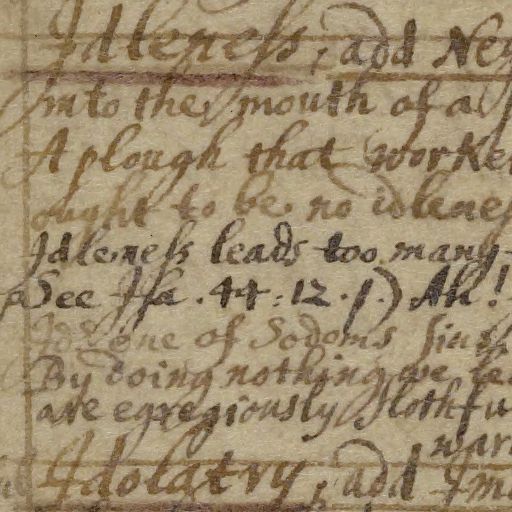 Idleness; add Ne
into the mouth of a
A plough that worke
ought to be no idlenes
Idleness leads too many
See Isa. 44:12. p.) Ah!
Id: one of Sodoms sins
By doing nothing we le
are egregiously slothfu
warn
Idolatry; add Im